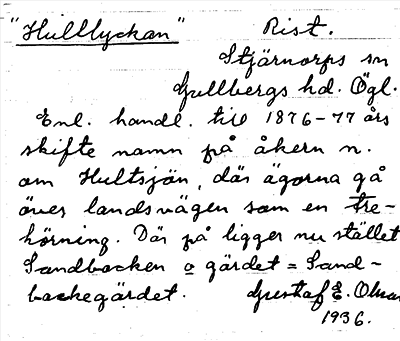 "Hulllyckan" Rist.
Stjärnorps sn
Gullbergs hd. Ögl.
Enl. handl. till 1876-77 års
skifte namn på åkern n.
om Hultsjön, där ägorna gå
över landsvägen som en tre-
hörning. Där på ligger nu stället
Sandbacken o gärdet = Sand-
backegärdet. Gustaf E.
1936.